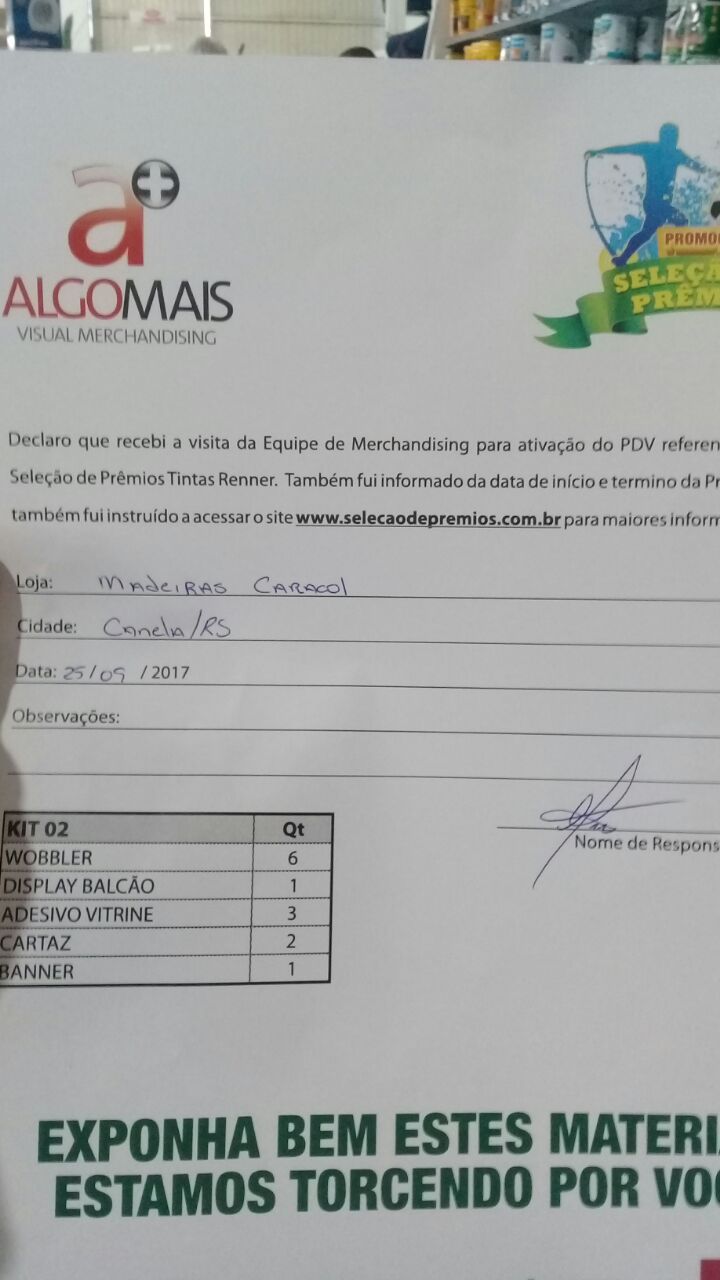 a+
ALGOMAIS
VISUAL MERCHANDISING
PROMO
SELEÇÃ
PRÊM
Declaro que recebi a visita da Equipe de Merchandising para ativação do PDV referen
Seleção de Prêmios Tintas Renner. Também fui informado da data de início e termino da Pr
também fui instruído a acessar o site www.selecaodepremios.com.br para maiores inform
Loja: MADEIRAS CARACOL
Cidade: Canela/RS
Data: 25/09 /2017
Observações:
Nome de Respons
KIT 02 Qt
WOBBLER 6
DISPLAY BALCÃO 1
ADESIVO VITRINE 3
CARTAZ 2
BANNER 1
EXPONHA BEM ESTES MATERIA
ESTAMOS TORCENDO POR VOC